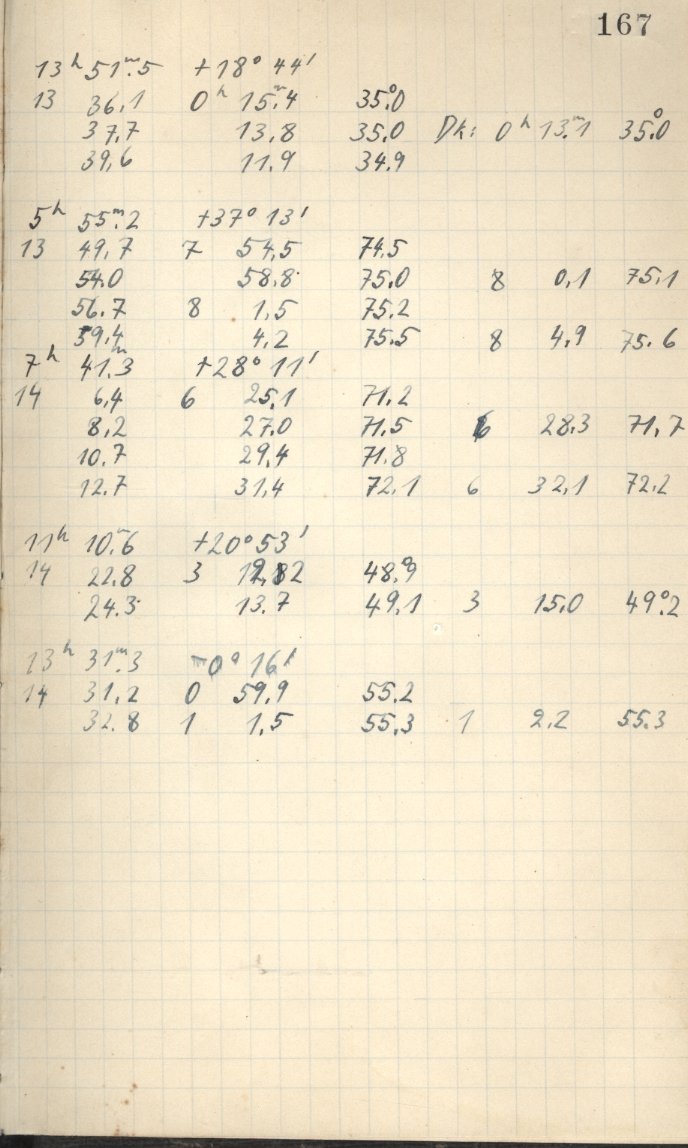 167
13ʰ 51ᵐ.5 +18° 44'
13 36,1 0ʰ 15ᵐ.4 35°.0
37,7 13,8 35,0 Dk: 0ʰ 13ᵐ.1 35°.0
39,6 11,9 34.9
5ʰ 55ᵐ.2 +37° 13'
13 49,7 7 54,5 74.5
54.0 58.8 75.0 8 0,1 75,1
56.7 8 1,5 75.2
59,4 4,2 75.5 8 4,9 75.6
7ʰ 41ᵐ.3 +28° 11'
14 6,4 6 25,1 71.2
8,2 27.0 71.5 6 28.3 71,7
10.7 29,4 71.8
12.7 31,4 72,1 6 32,1 72.2
11ʰ 10ᵐ.6 +20° 53'
14 22.8 3 48°.9
24.3 13.7 49,1 3 15.0 49°.2
13ʰ 31ᵐ.3 -0° 16'
14 31,2 0 59,9 55.2
32.8 1 1,5 55,3 1 2,2 55.3